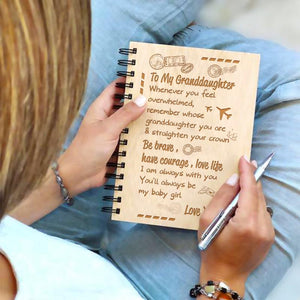 To My Granddaughter
Whenever you feel
overwhelmed,
remember whose
granddaughter you are
& straighten your crown
Be brave,
have courage, love life
I am always with you
You'll always be
my baby girl
Love